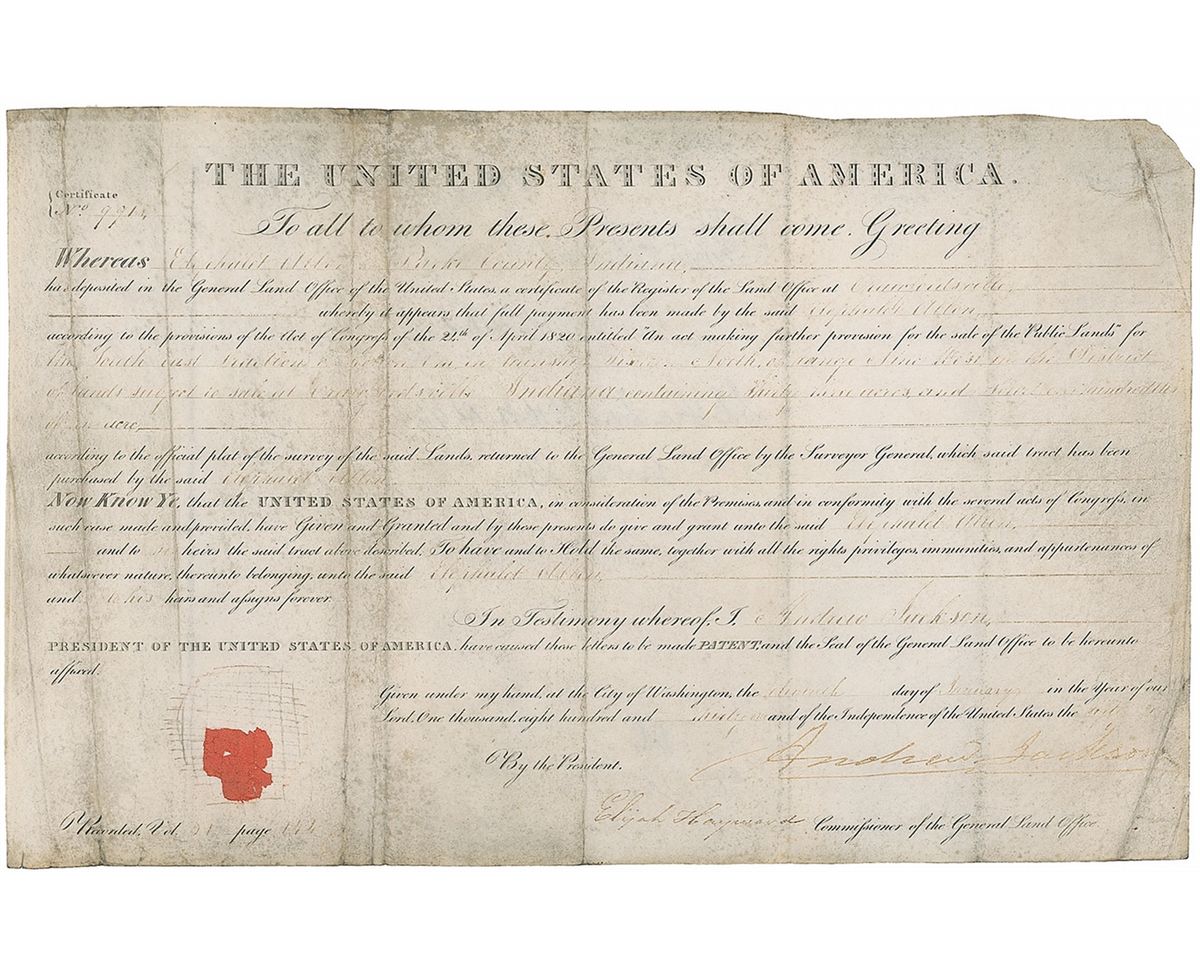 THE UNITED STATES OF AMERICA.
Certificate
No. 991
To all to whom these Presents shall come, Greeting
Whereas County, Indiana,
has deposited in the General Land Office of the United States, a certificate of the Register of the Land Office at Crawfordsville,
whereby it appears that full payment has been made by the said
according to the provisions of the Act of Congress of the 24th of April 1820 entitled "An act making further provision for the sale of the Public Lands" for
the South East in township North, of range Nine West in the District
of lands subject to sale at Crawfordsville Indiana containing acres and hundredths
of an acre,
according to the official plat of the survey of the said Lands, returned to the General Land Office by the Surveyor General, which said tract has been
purchased by the said
Now Know Ye, that the UNITED STATES OF AMERICA, in consideration of the Premises, and in conformity with the several acts of Congress, in
such case made and provided, have Given and Granted and by these presents do give and grant unto the said
and to heirs the said tract above described. To have and to Hold the same, together with all the rights privileges, immunities, and appurtenances of
whatsoever nature, thereunto belonging, unto the said
and to his heirs and assigns forever.
In Testimony whereof, I, Andrew Jackson,
PRESIDENT OF THE UNITED STATES OF AMERICA, have caused these letters to be made PATENT, and the Seal of the General Land Office to be hereunto
affixed.
Given under my hand, at the City of Washington, the day of January in the Year of our
Lord, One thousand, eight hundred and and of the Independence of the United States the
Andrew Jackson
By the President.
Elijah Hayward Commissioner of the General Land Office.
Recorded, Vol. page